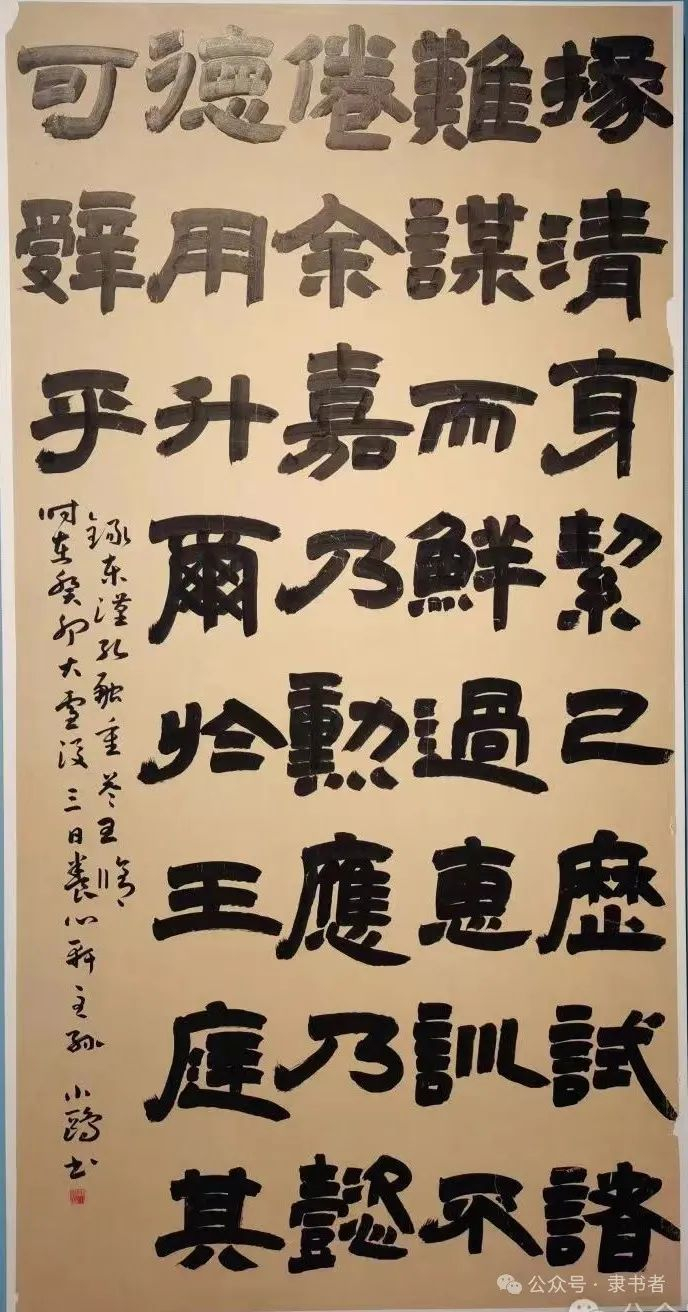 掾清身絜己歷試諸
難謀而鮮過惠訓不
倦余嘉乃勳應乃懿
德用升爾於王庭其
可辭乎
錄東漢孔融重答王脩
時在癸卯大雪後三日養心軒主孫小鷗书
公众号·隶书者